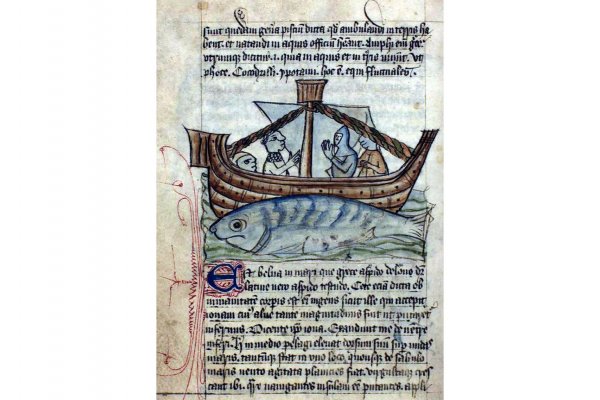 sunt quedam gen̄a pisciū dicta qd ambulandi in terris ha
bent. et natandi in aquis officiū Amphi em̄ grec
utrumque dicitur .i. qua in aquis et in tr̄is Vt
phoce. Cocodrilli. ypotami. hoc ē. equi fluctuales.
Est belua in mari que grece aspido delone dr̄
latine uero aspido testudo. Cete eciā dicta ob
inmanitatem corpis est em̄ ingens sicut ille qui accepit
ionam cui' alu' tante magnitudinis fuit ut putaret
infernus. Dicente ip̄o iona. Exaudiuit me de uentre
inferi. in medio pelagi eleuat dorsum suū sup undas
maris. stat in uno loco. quousque de sabulo
maris uento agitata planicies fiat. cres
cant ibi. nauigantes insulam eē putantes. appli